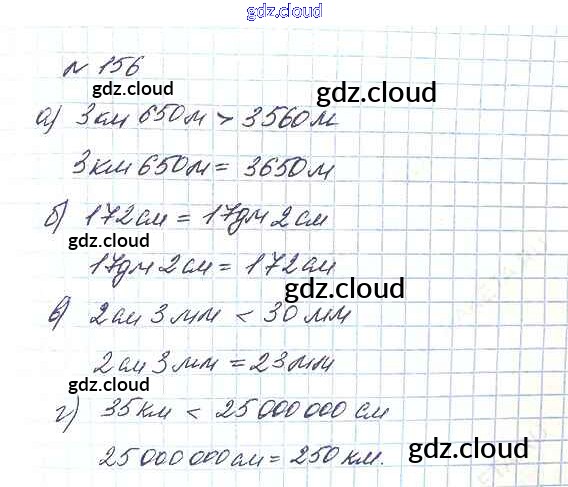 gdz.cloud
gdz.cloud
№ 156
gdz.cloud
gdz.cloud
а) 3 км 650 м > 3560 м
3 км 650 м = 3650 м
б) 172 см = 17 дм 2 см
gdz.cloud
17 дм 2 см = 172 см
gdz.cloud
в) 2 см 3 мм < 30 мм
2 см 3 мм = 23 мм
г) 35 км < 25 000 000 см
25 000 000 см = 250 км.
gdz.cloud